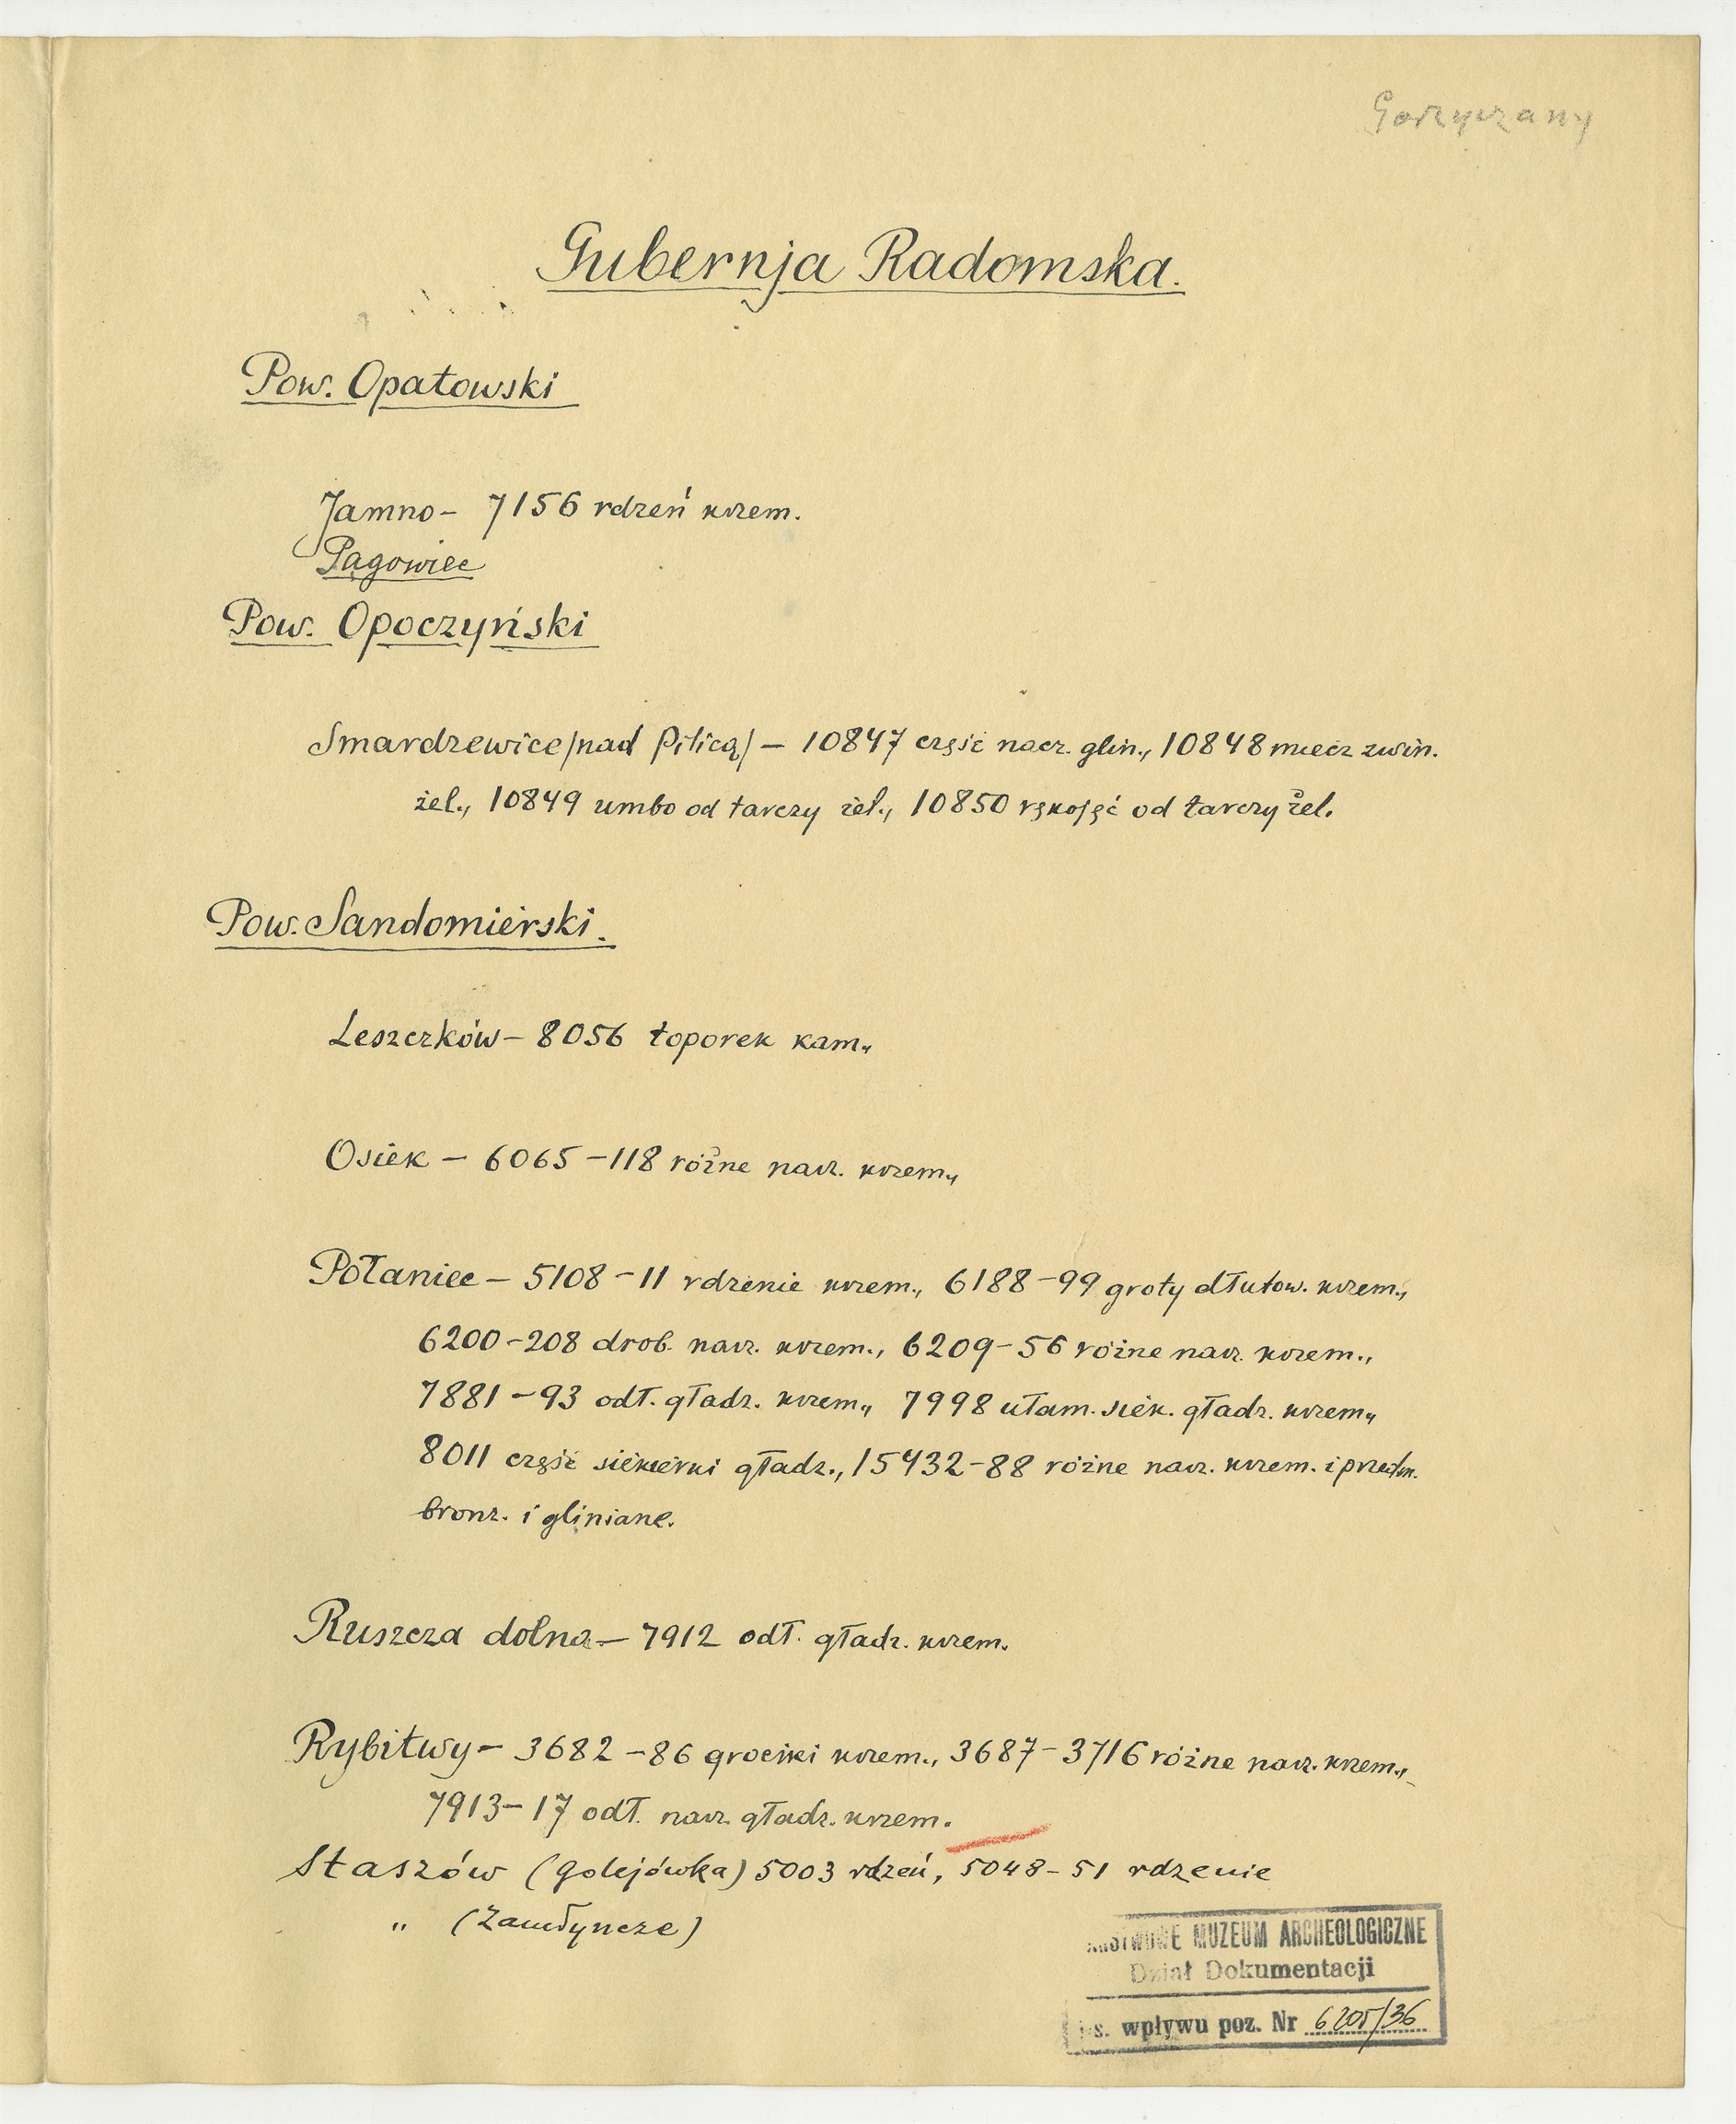 Gorzyczany
Gubernja Radomska.
Pow. Opatowski
Jamno – 7156 rdzeń krzem.
Pągowiec
Pow. Opoczyński
Smardzewice /nad Pilicą/ – 10847 część nacz. glin., 10848 miecz zwin.
żel., 10849 umbo od tarczy żel., 10850 rękojęć od tarczy żel.
Pow. Sandomierski.
Leszczków – 8056 toporek kam.,
Osiek – 6065 – 118 różne narz. krzem.,
Połaniec – 5108 – 11 rdzenie krzem., 6188 – 99 groty dłutow. krzem.,
6200 – 208 drob. narz. krzem., 6209 – 56 różne narz. krzem.,
7881 – 93 odł. gładz. krzem., 7998 ułam. siek. gładz. krzem.,
8011 część siekierki gładz., 15432 – 88 różne narz. krzem. i przedm.
bronz. i gliniane.
Ruszcza dolna – 7912 odł. gładz. krzem.
Rybitwy – 3682 – 86 grociki krzem., 3687 – 3716 różne narz. krzem.,
7913 – 17 odł. narz. gładz. krzem.
Staszów (Golejówka) 5003 rdzeń, 5048 – 51 rdzenie
" (Zamłyncze)
PAŃSTWOWE MUZEUM ARCHEOLOGICZNE
Dział Dokumentacji
Ks. wpływu poz. Nr 6205/36